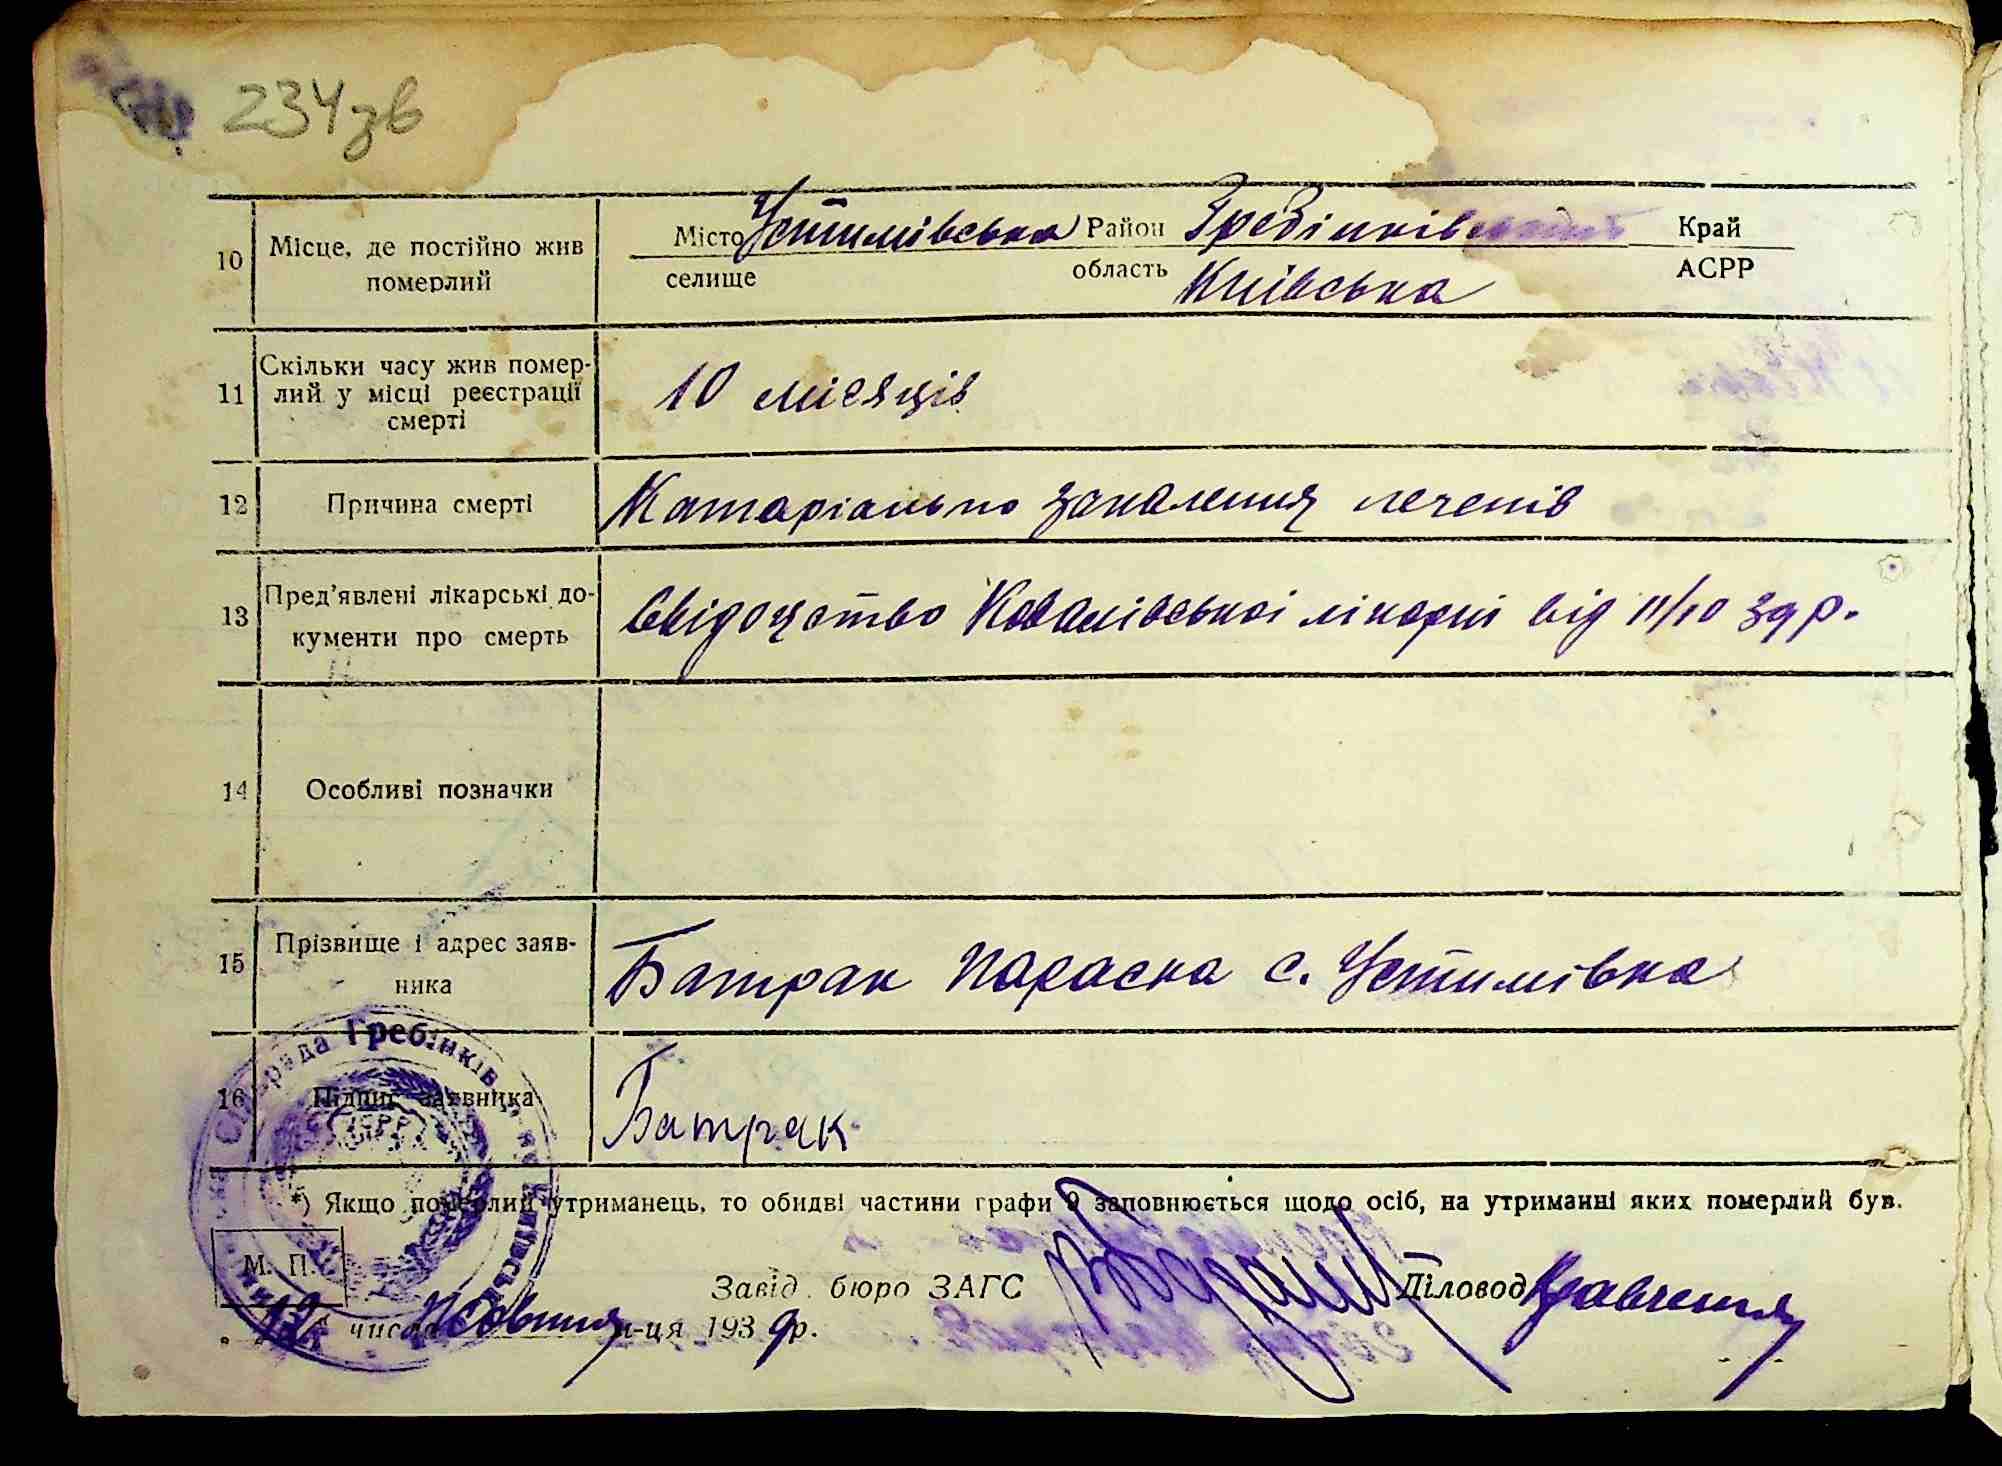 234зв
10 Місце, де постійно жив померлий
Місто Устимівська Район Гребінківський Край
селище область Київська АСРР
11 Скільки часу жив помер-
лий у місці реєстрації
смерті
10 місяців
12 Причина смерті Катаріально запалення легенів
13 Пред'явлені лікарські до-
кументи про смерть
Свідоцтво Ковалівської лікарні від 11/10 39 р.
14 Особливі позначки
15 Прізвище і адрес заяв-
ника
Батрак Параска с. Устимівка
16 Підпис заявника Батрак
*) Якщо померлий утриманець, то обидві частини графи 9 заповнюється щодо осіб, на утриманні яких померлий був.
М. П.
Завід. бюро ЗАГС Діловод Кравченя
числа Жовтня м-ця 1939 р.
рада Гребінків
УСРР